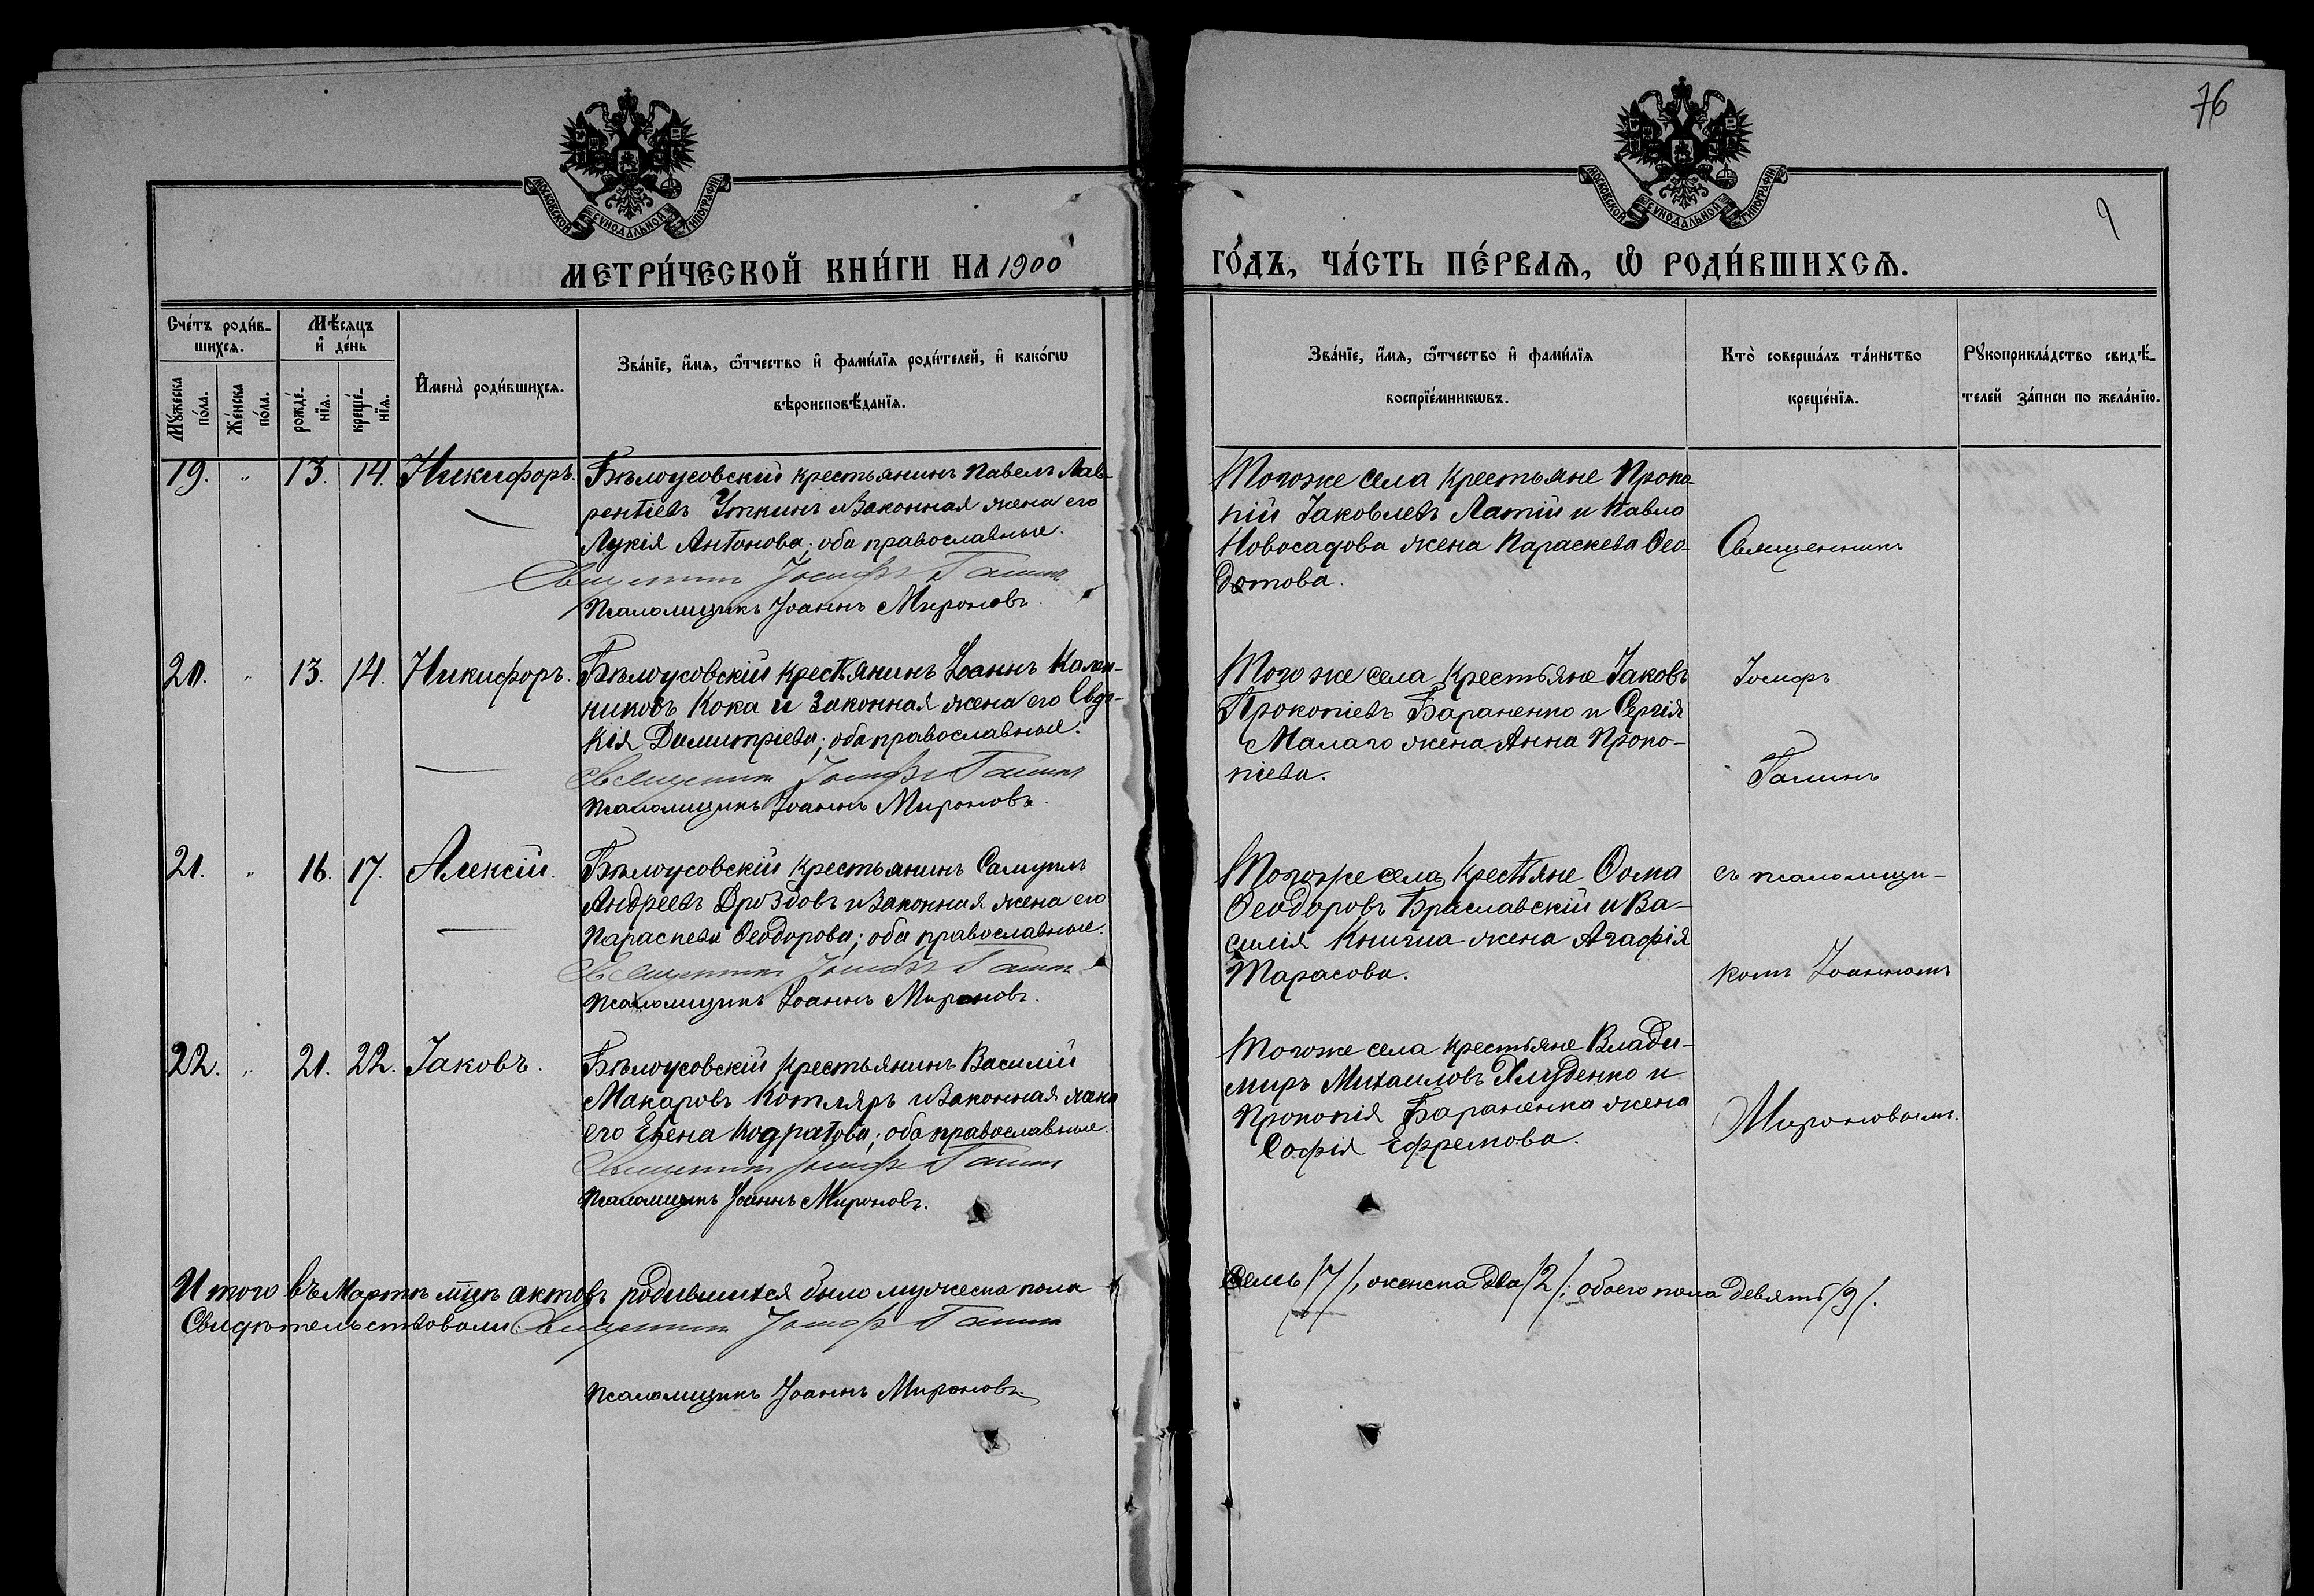 76
МОСКОВСКОЙ СѴНОДАЛЬНОЙ ТИПОГРАФІИ
МОСКОВСКОЙ СѴНОДАЛЬНОЙ ТИПОГРАФІИ
9
МЕТРИ́ЧЕСКОЙ КНИ́ГИ НА 1900
ГО́ДЪ, ЧА́СТЬ ПЕ́РВАѦ, Ѽ РОДИ́ВШИХСѦ.
Сче́тъ роди́в-
шихсѧ.
Мѣ́сяцъ
и҆ де́нь
Мꙋ́жеска
по́ла.
Же́нска
по́ла.
рожде́-
нїѧ.
креще́-
нїѧ.
И҆мена̀ роди́вшихсѧ.
Зва́нїе, и҆́мѧ, ѻ҆́тчество и҆ фами́лїѧ роди́телей, и҆ како́гѡ
вѣроисповѣ́данїѧ.
Зва́нїе, и҆́мѧ, ѻ҆́тчество и҆ фами́лїѧ
воспрїе́мникѡвъ.
Кто̀ соверша́лъ та́инство
креще́нїѧ.
Рꙋкоприкла́дство свидѣ́-
телей за́писи по жела́нїю.
19. " 13. 14. Никифоръ.
Бѣлоусовскій крестьянинъ Павелъ Лав-
рентіевъ Уткинъ и законная жена его
Лукія Антонова; оба православные.
Священникъ Іосифъ Галинъ
Псаломщикъ Іоаннъ Мироновъ.
Тогоже села крестьяне Проко-
пій Іаковлевъ Латій и Павла
Новосадова жена Параскева Ѳео-
дотова.
Священникъ
20. " 13. 14. Никифоръ.
Бѣлоусовскій крестьянинъ Іоаннъ Кален-
никовъ Кока и законная жена его Евдо-
кія Димитріева; оба православные.
Священникъ Іосифъ Галинъ
Псаломщикъ Іоаннъ Мироновъ.
Того же села крестьяне Іаковъ
Прокопіевъ Бараненко и Сергія
Малаго жена Анна Проко-
піева.
Іосифъ
Галинъ
21. " 16. 17. Алексій.
Бѣлоусовскій крестьянинъ Самуилъ
Андреевъ Дроздовъ и законная жена его
Параскева Ѳеодорова; оба православные.
Священникъ Іосифъ Галинъ
Псаломщикъ Іоаннъ Мироновъ.
Тогоже села крестьяне Ѳома
Ѳеодоровъ Браславскій и Ва-
силія Книгиа жена Агафія
Тарасова.
съ псаломщи-
комъ Іоанномъ
22. " 21. 22. Іаковъ.
Бѣлоусовскій крестьянинъ Василій
Макаровъ Котляръ и законная жена
его Елена Кодратова; оба православные.
Священникъ Іосифъ Галинъ
Псаломщикъ Іоаннъ Мироновъ.
Тогоже села крестьяне Влади-
миръ Михаиловъ Хлуденко и
Прокопія Бараненка жена
Софія Ефремова.
Мироновымъ.
Итого въ Мартѣ мцѣ актовъ родившихся было мужеска пола
семь /7/, женска два /2/; обоего пола девять /9/.
Свидѣтельствовали: Священникъ Іосифъ Галинъ
Псаломщикъ Іоаннъ Мироновъ.